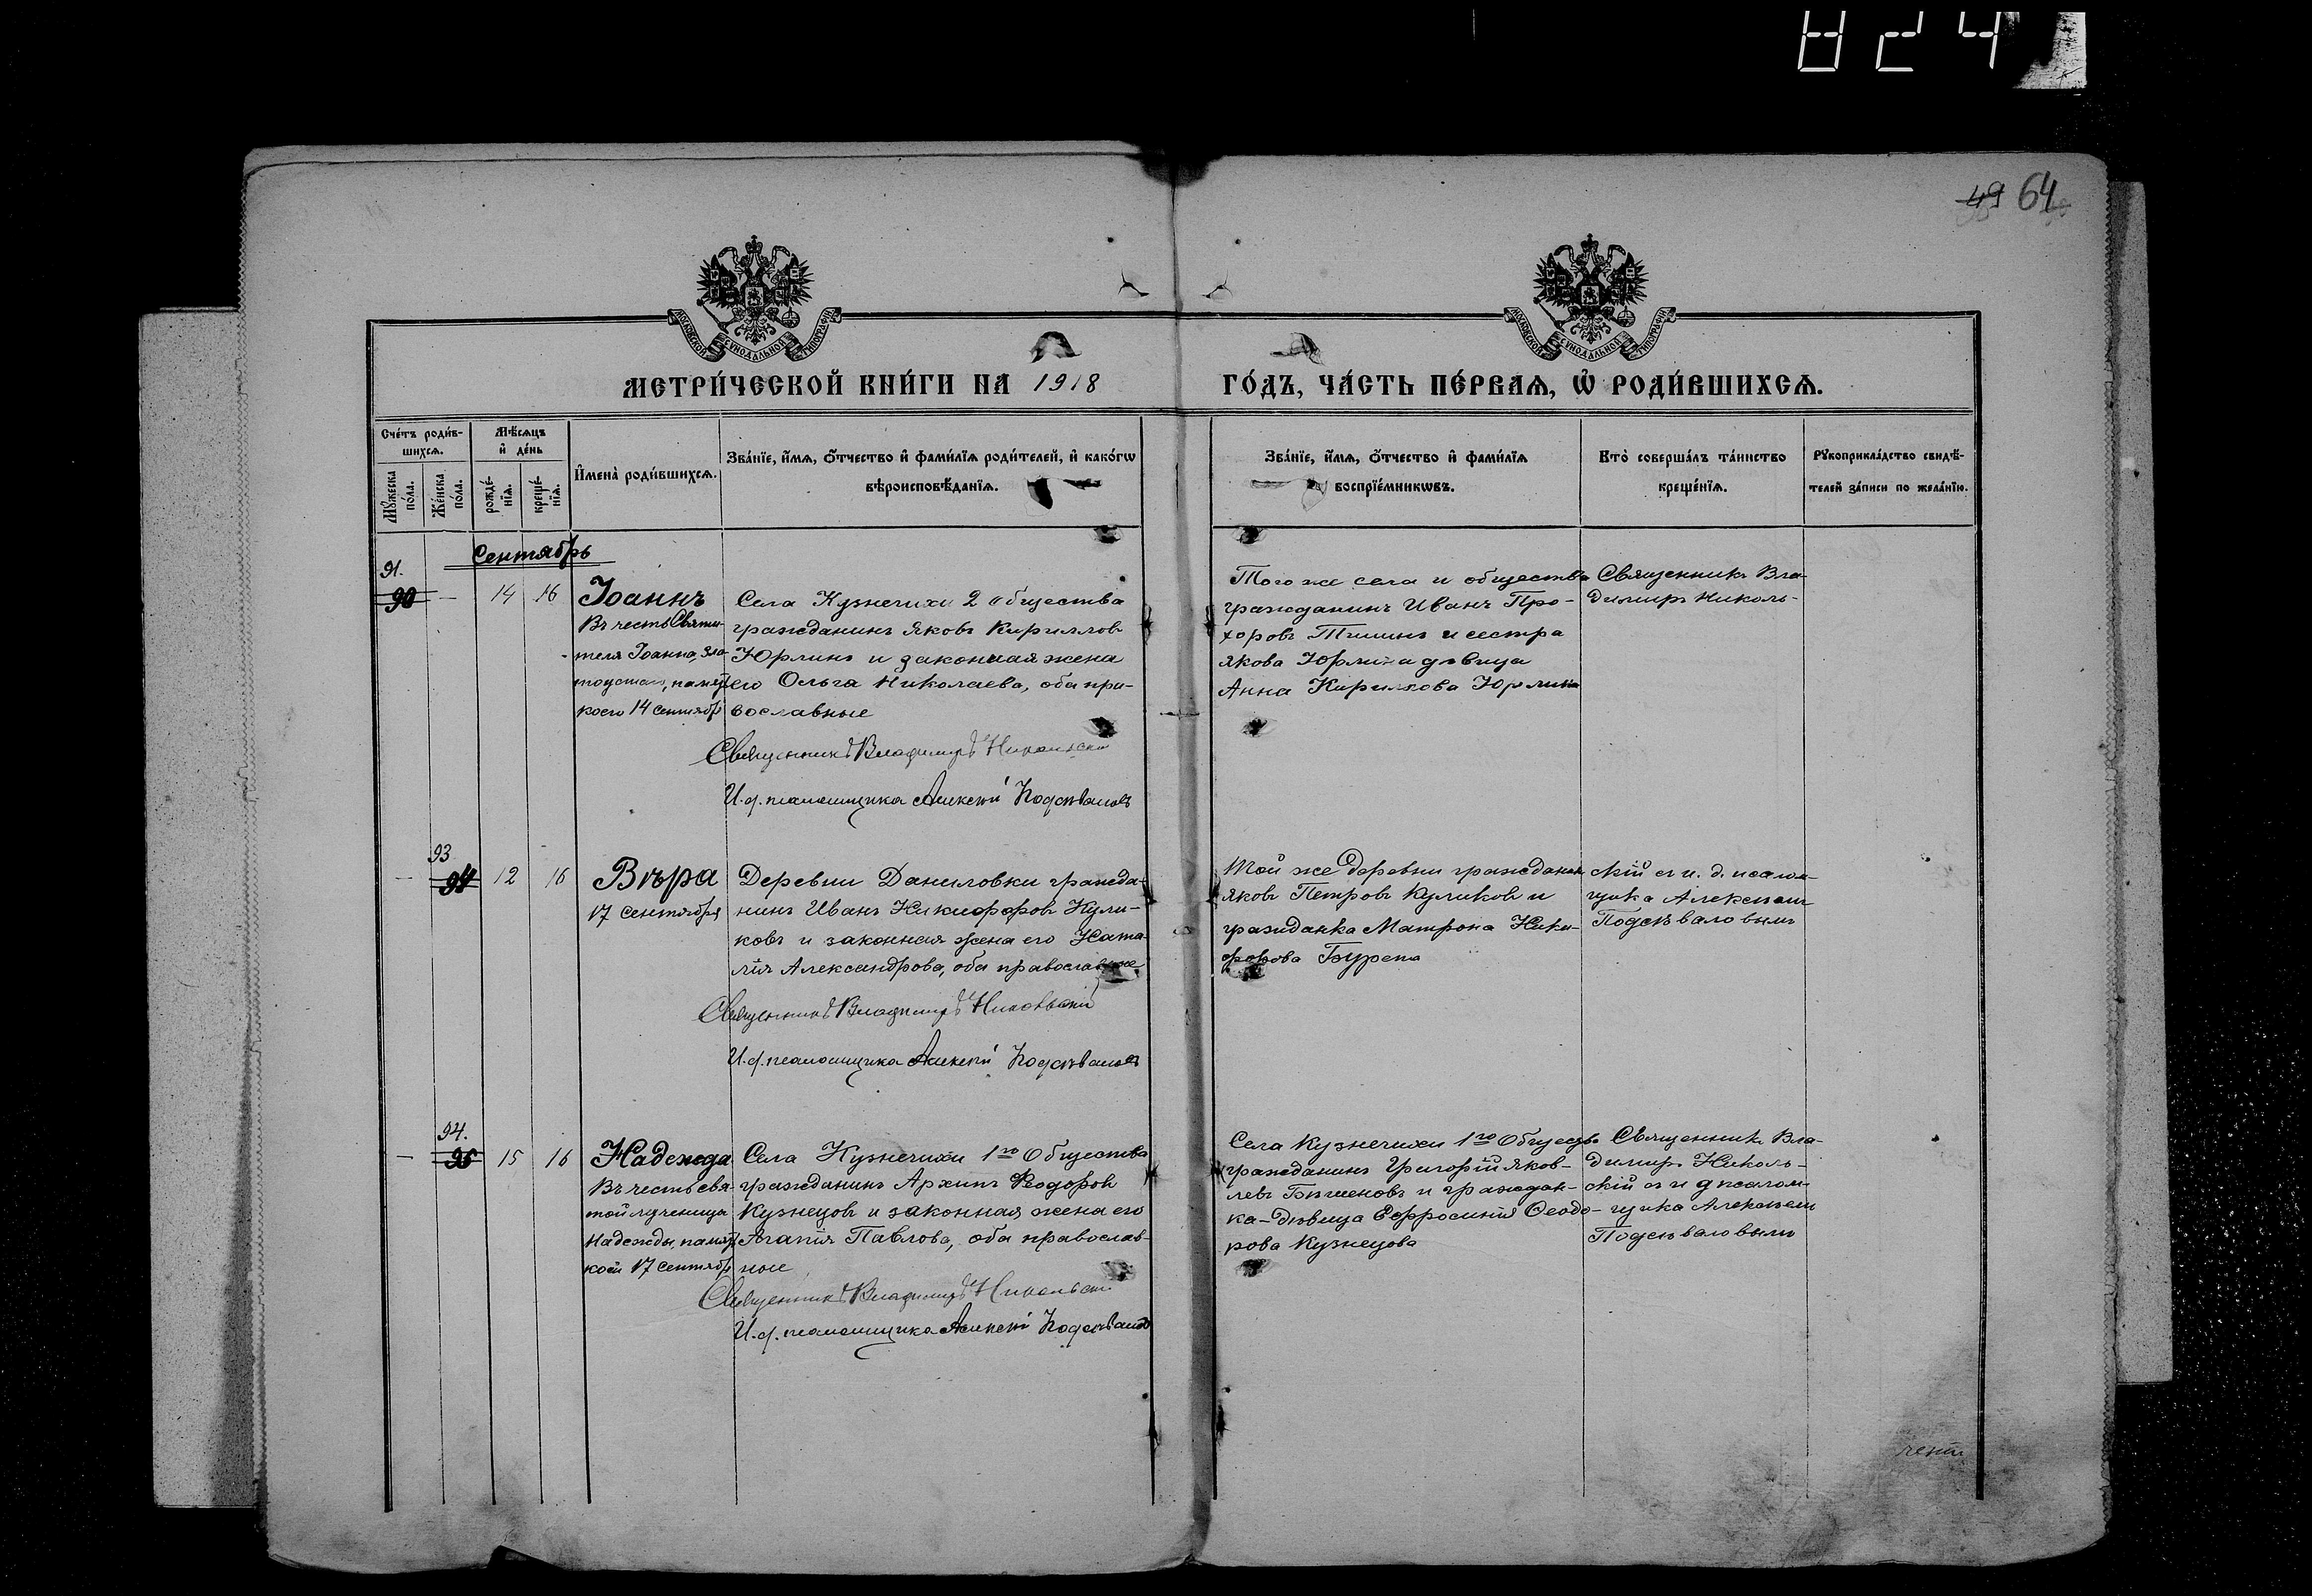 824
49 64
МОСКОВСКОЙ СѴНОДАЛЬНОЙ ТИПОГРАФІИ
МОСКОВСКОЙ СѴНОДАЛЬНОЙ ТИПОГРАФІИ
МЕТРИ́ЧЕСКОЙ КНИ́ГИ НА 1918
ГО́ДЪ, ЧА́СТЬ ПЕ́РВАѦ, Ѡ҆ РОДИ́ВШИХСѦ.
Сче́тъ роди́в-
шихсѧ.
Мѣ́сѧцъ
и҆ де́нь
Мꙋ́жеска
по́ла.
Же́нска
по́ла.
рожде́-
нїѧ.
креще́-
нїѧ.
И҆мена̀ роди́вшихсѧ.
Зва́нїе, и҆́мѧ, ѻ҆́тчество и҆ фами́лїѧ роди́телей, и҆ како́гѡ
вѣроисповѣ́данїѧ.
Зва́нїе, и҆́мѧ, ѻ҆́тчество и҆ фами́лїѧ
воспрїе́мникѡвъ.
Кто̀ соверша́лъ та́инство
креще́нїѧ.
Рꙋкоприкла́дство свидѣ́-
телей за́писи по жела́нїю.
Сентябрь
91.
90 — 14 16
Іоаннъ
Въ честь Святи-
теля Іоанна, Зла-
тоустаго, память
коего 14 Сентября
Села Кузнечихи 2 общества
гражданинъ Яковъ Кирилловъ
Юрлинъ и законная жена
его Ольга Николаева, оба пра-
вославные
Священникъ Владимиръ Никольскій
И. д. псаломщика Алексѣй Подсѣваловъ
Того же села и общества
гражданинъ Иванъ Про-
хоровъ Тишинъ и сестра
Якова Юрлина дѣвица
Анна Кириллова Юрлина
Священникъ Вла-
димиръ Николь-
93
— 94 12 16
Вѣра
17 Сентября
Деревни Даниловки гражда-
нинъ Иванъ Никифоровъ Кули-
ковъ и законная жена его Ната-
лія Александрова, оба православные
Священникъ Владимиръ Никольскій
И. д. псаломщика Алексѣй Подсѣваловъ
Той же деревни гражданинъ
Яковъ Петровъ Куликовъ и
гражданка Матрона Ники-
форова
скій съ и. д. псалом-
щика Алексѣемъ
Подсѣваловымъ
94.
— 95 15 16
Надежда
Въ честь свя-
той мученицы
Надежды, память
коей 17 Сентября
Села Кузнечихи 1го Общества
гражданинъ Архипъ Ѳеодоровъ
Кузнецовъ и законная жена его
Агапія Павлова, оба православ-
ные
Священникъ Владимиръ Никольскій
И. д. псаломщика Алексѣй Подсѣваловъ
Села Кузнечихи 1го Общества
гражданинъ Григорій Яков-
левъ и граждан-
ка-дѣвица Ефросинія Ѳеодо-
рова Кузнецова
Священникъ Вла-
димиръ Николь-
скій съ и д псалом-
щика Алексѣемъ
Подсѣваловымъ